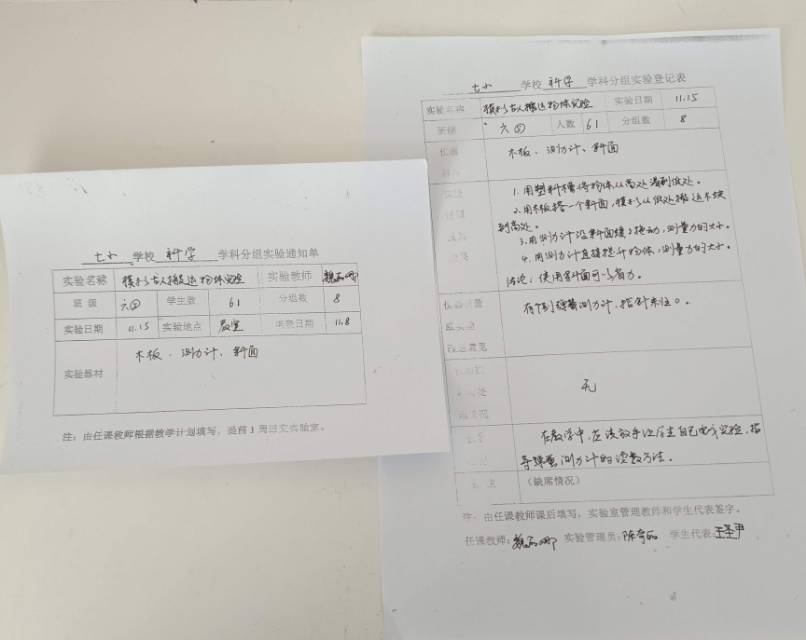 七小 学校 科学 学科分组实验通知单
实验名称 模拟古人搬运物体实验 实验教师
班级 六④ 学生数 61 分组数 8
实验日期 11.15 实验地点 教室 填表日期 11.8
实验器材 木板、测力计、斜面
注：由任课教师根据教学计划填写，提前1周送交实验室。
七小 学校 科学 学科分组实验登记表
实验名称 模拟古人搬运物体实验 实验日期 11.15
班级 六④ 人数 61 分组数 8
木板、测力计、斜面
1.用塑料槽将物体从高处滑到低处。
2.用木板搭一个斜面，模拟从低处搬运木块
到高处。
3.用测力计沿斜面慢慢拖动，测量力的大小。
4.用测力计直接提升物体，测量力的大小。
结论：使用斜面可以省力。
有个别弹簧测力计，指针未在0。
无
在教学中，应该放手让学生自己完成实验，指
导弹簧测力计的读数方法。
（缺席情况）
注：由任课教师课后填写，实验室管理教师和学生代表签字。
任课教师： 实验管理员： 学生代表：